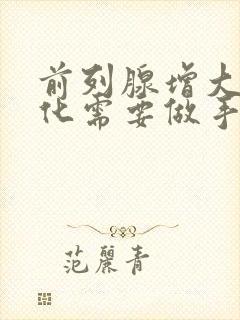 前列腺增大
化需要做手
范丽青